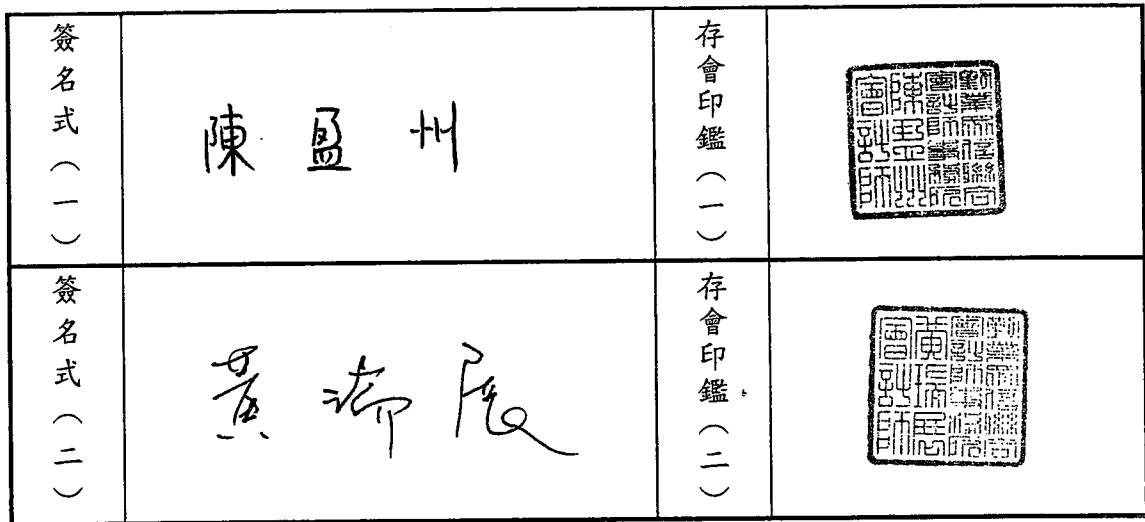 簽名式(一)
陳盈州
存會印鑑(一)
勤業眾信聯合
會計師事務所
陳盈州
會計師
簽名式(二)
黃瑞展
存會印鑑(二)
勤業眾信聯合
會計師事務所
黃瑞展
會計師